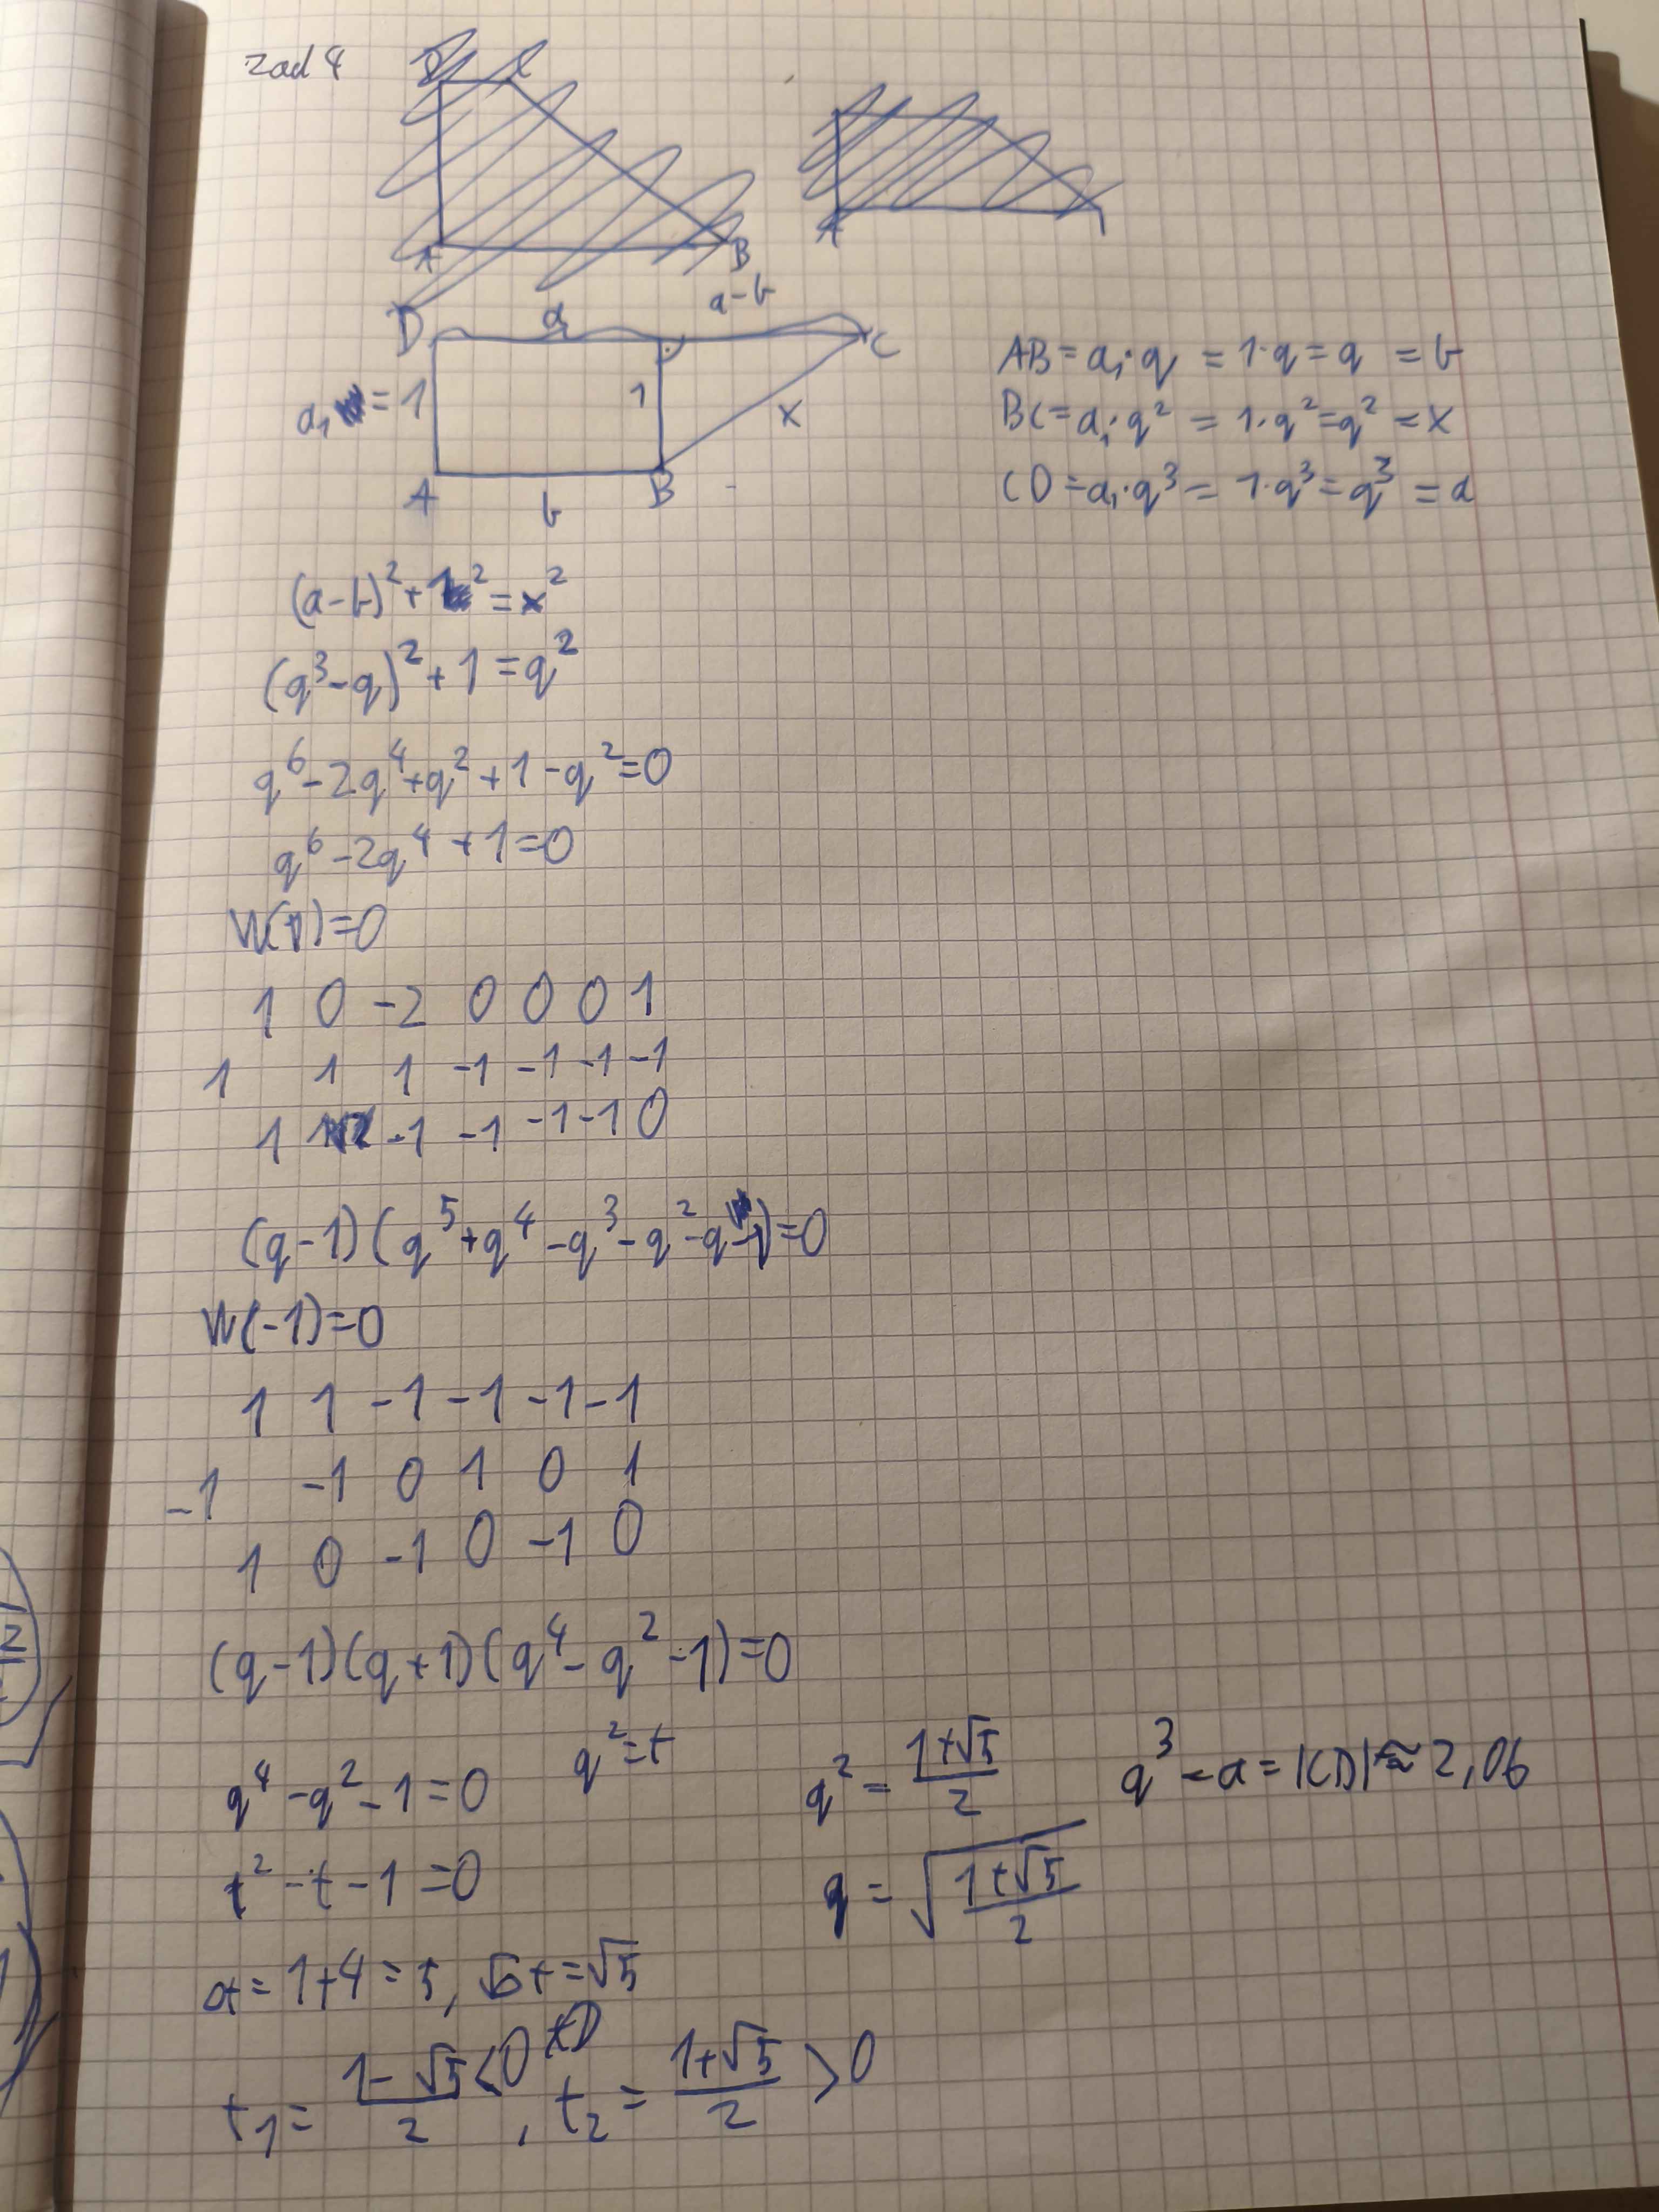 zad 4
D C
A B
A
D a a-b C
a₁ = 1 1 x
A b B
AB = a₁·q = 1·q = q = b
BC = a₁·q² = 1·q² = q² = x
CD = a₁·q³ = 1·q³ = q³ = a
(a-b)² + 1² = x²
(q³-q)² + 1 = q²
q⁶ - 2q⁴ + q² + 1 - q² = 0
q⁶ - 2q⁴ + 1 = 0
W(1) = 0
1 0 -2 0 0 0 1
1 1 1 -1 -1 -1 -1
1 1 -1 -1 -1 -1 0
(q-1)(q⁵ + q⁴ - q³ - q² - q - 1) = 0
W(-1) = 0
1 1 -1 -1 -1 -1
-1 -1 0 1 0 1
1 0 -1 0 -1 0
(q-1)(q+1)(q⁴ - q² - 1) = 0
q⁴ - q² - 1 = 0 q² = t
t² - t - 1 = 0
Δt = 1+4 = 5, √Δt = √5
t₁ = (1-√5)/2 < 0, t₂ = (1+√5)/2 > 0
q² = (1+√5)/2
q = √((1+√5)/2)
q³ = a = |CD| ≈ 2,06